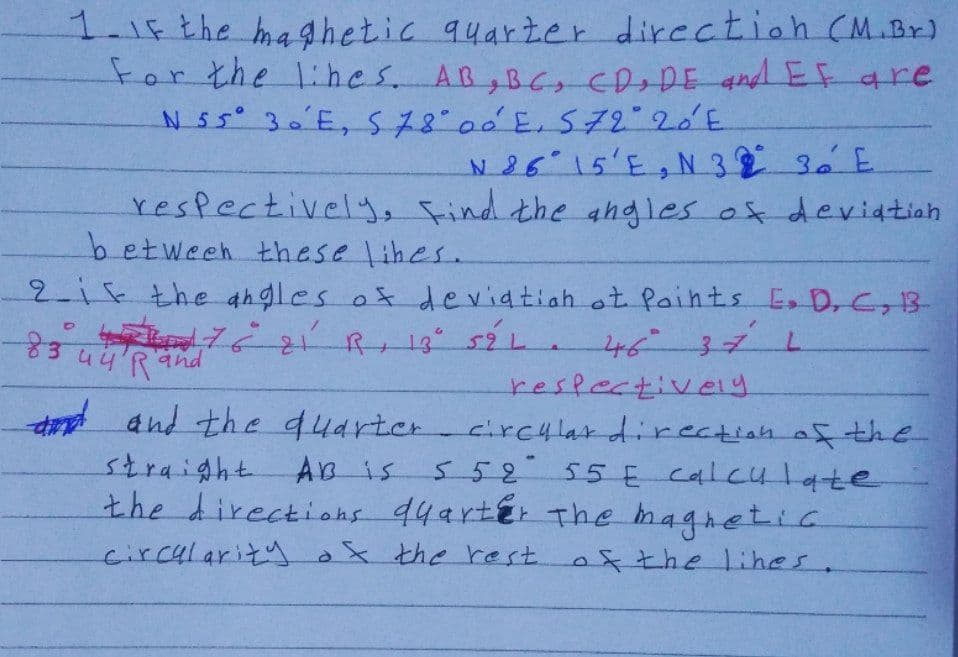 1-If the maghetic quarter direction (M.Br)
For the lines. AB, BC, CD, DE and EF are
N 55° 30'E, S 78° 00'E, S 72° 20'E
N 86° 15'E, N 32° 30' E
respectively, find the angles of deviation
between these lines.
2-if the angles of deviation of Points E, D, C, B
83° 44' R and 76° 21' R, 13° 52' L. 46° 37' L
respectively
and the quarter-circular direction of the
straight AB is S 52° 55 E calculate
the directions quarter The magnetic
circularity of the rest of the lines.